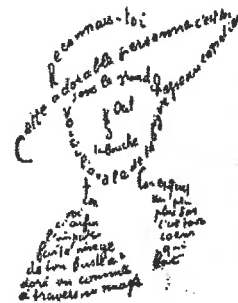 Reconnais-toi
Cette adorable personne c'est toi
Sous le grand chapeau canotier
Oeil
la bouche
Voici l'ovale de ta figure
ton cou exquis
voi
ci enfin
l'impar
faite image
de ton buste a
doré vu comme
à travers un nuage
un peu
plus bas
c'est ton
coeur
qui
bat